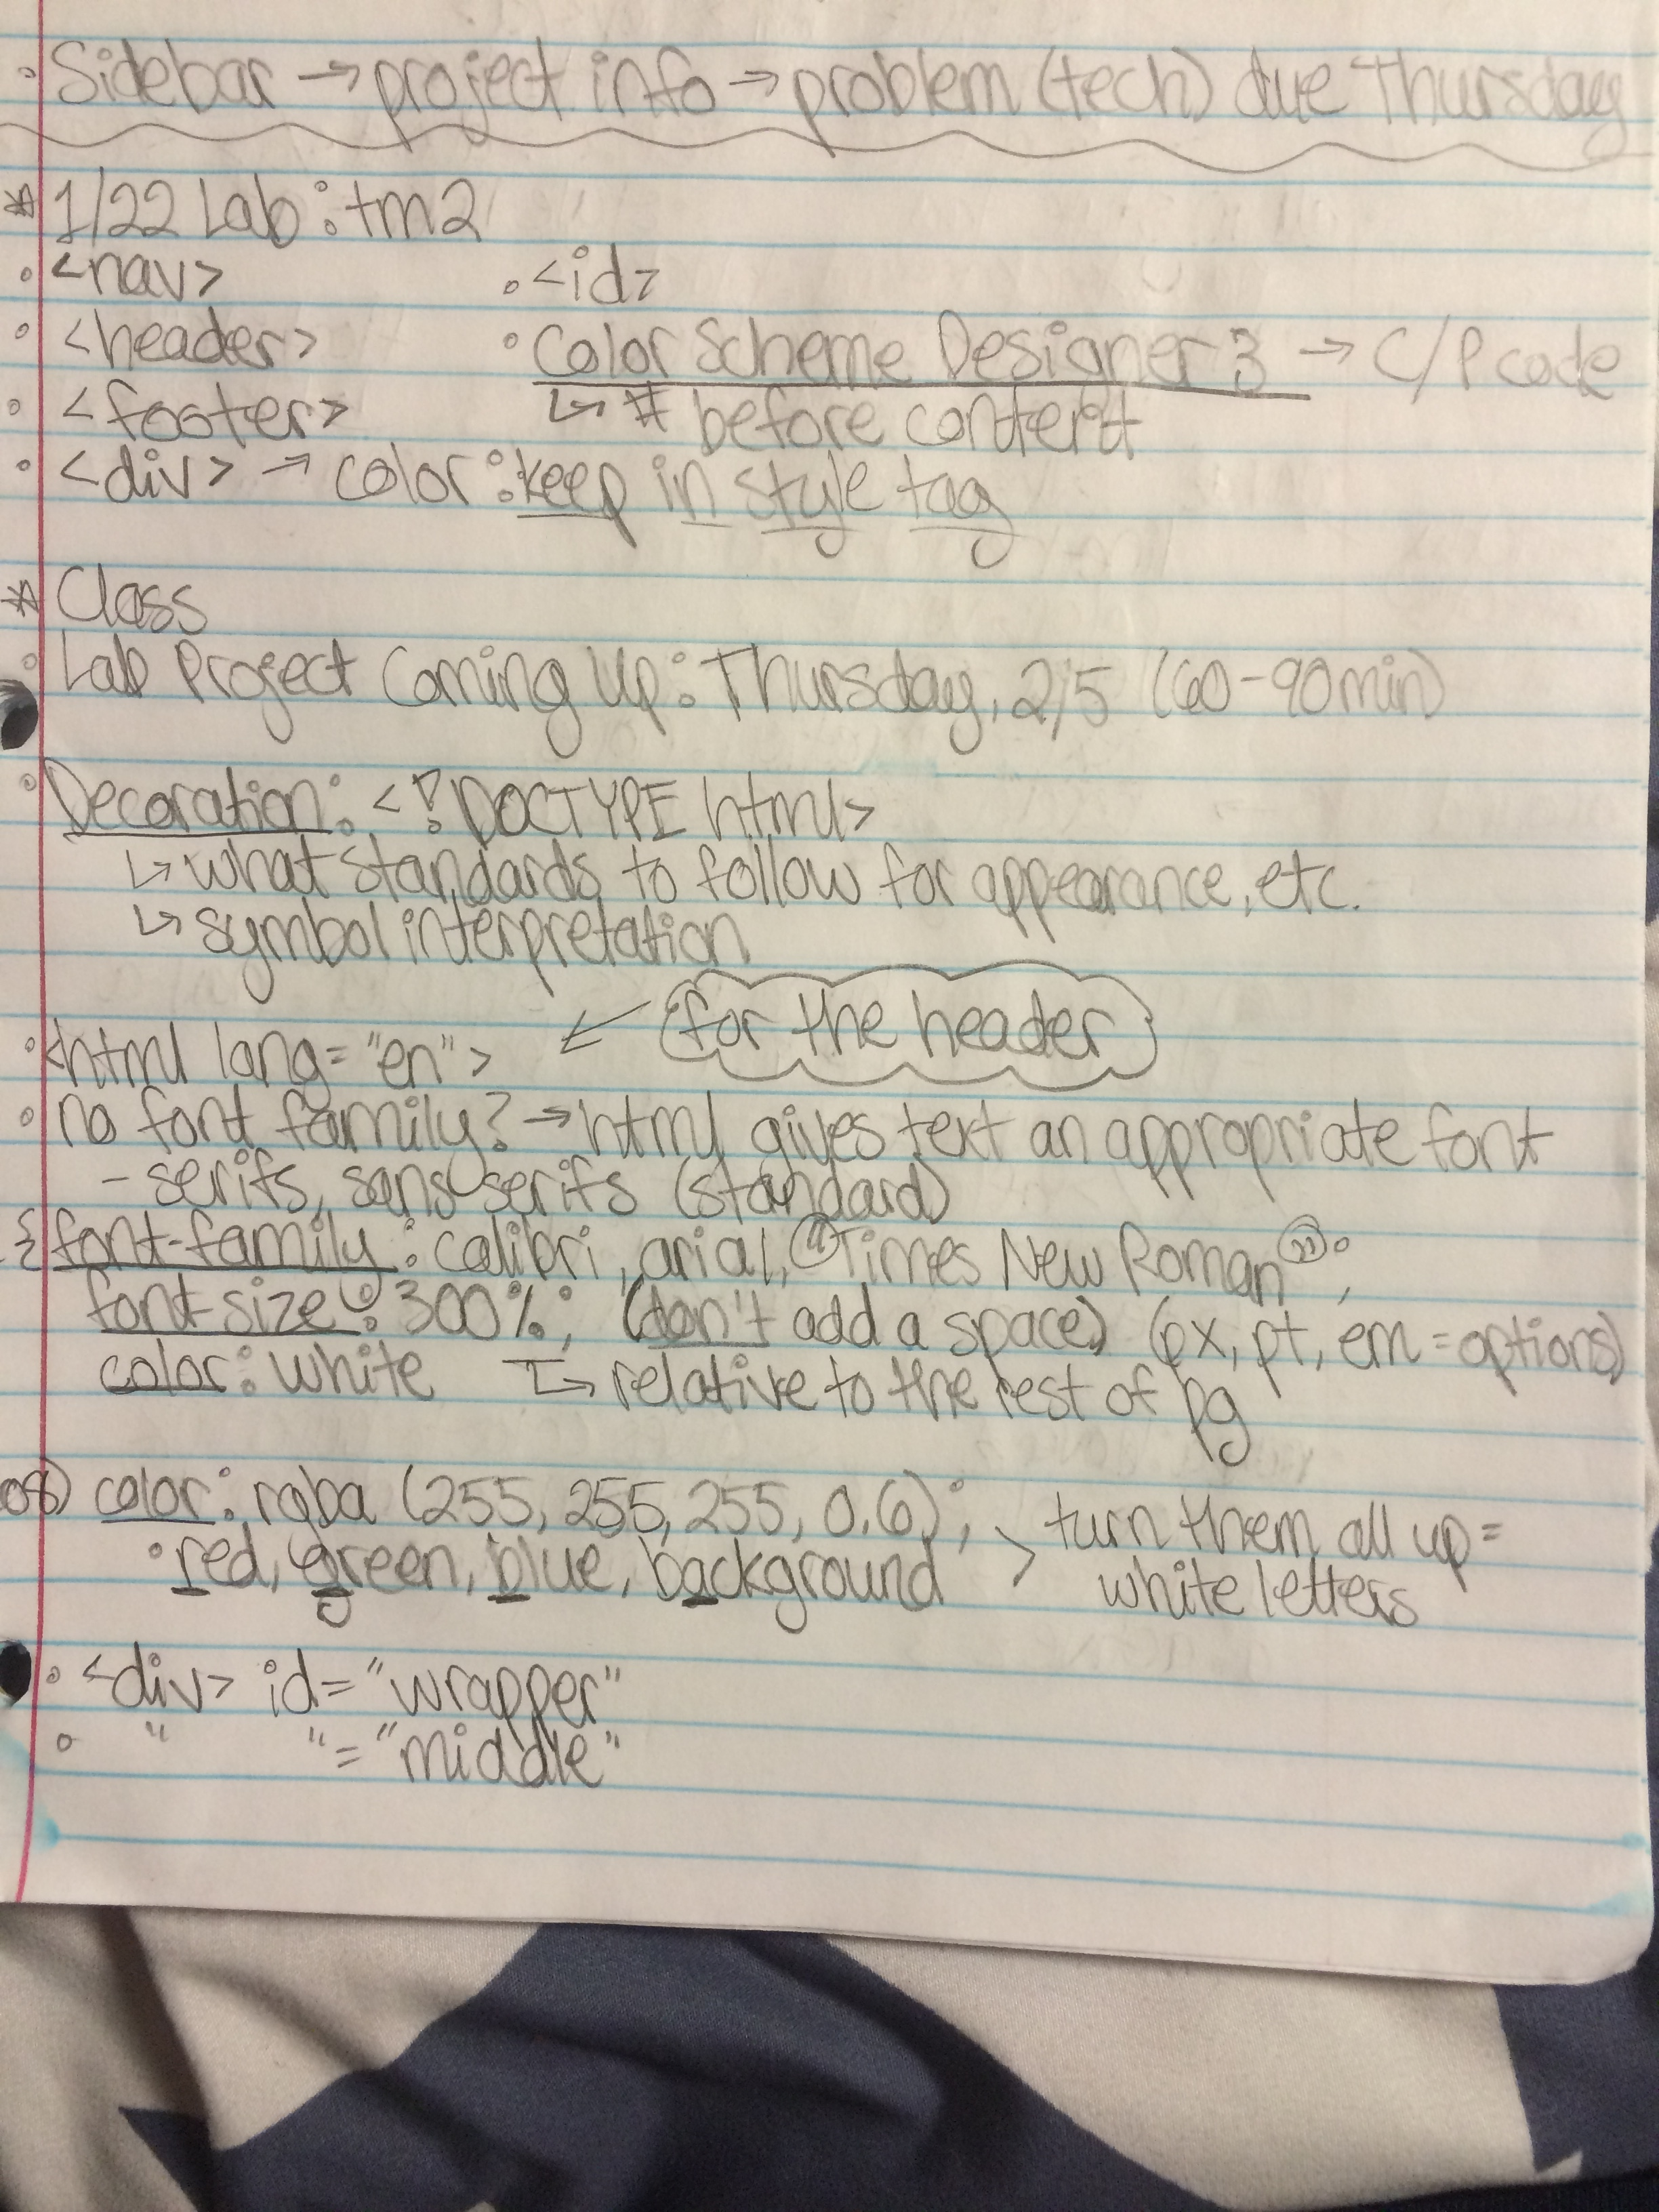 • Sidebar → project info → problem (tech) due Thursday
* 1/22 Lab: tm2
• <nav> • <id>
• <header> • Color Scheme Designer 3 → C/P code
• <footer> ↳ # before content
• <div> → color: keep in style tag
* Class
• Lab Project Coming Up: Thursday, 2/5 (60-90min)
• Decoration: <!DOCTYPE html>
↳ what standards to follow for appearance, etc.
↳ symbol interpretation
• <html lang="en"> ← for the header
• no font family? → html gives text an appropriate font
- serifs, sans serifs (standard)
{ font-family: calibri, arial, "Times New Roman";
font-size: 300%; (don't add a space) (px, pt, em = options)
color: white ↳ relative to the rest of pg
color: rgba (255, 255, 255, 0.6); > turn them all up =
• red, green, blue, background white letters
• <div> id="wrapper"
• " " = "middle"